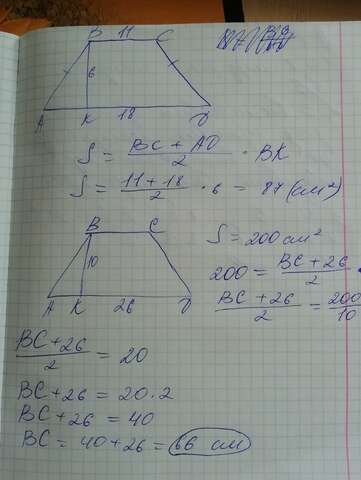 B 11 C
6
A K 18 D
S = BC + AD / 2 · BK
S = 11 + 18 / 2 · 6 = 87 (см²)
B C
10
A K 26 D
S = 200 см²
200 = BC + 26 / 2 ·
BC + 26 / 2 = 200 / 10
BC + 26 / 2 = 20
BC + 26 = 20 · 2
BC + 26 = 40
BC = 40 + 26 = 66 см